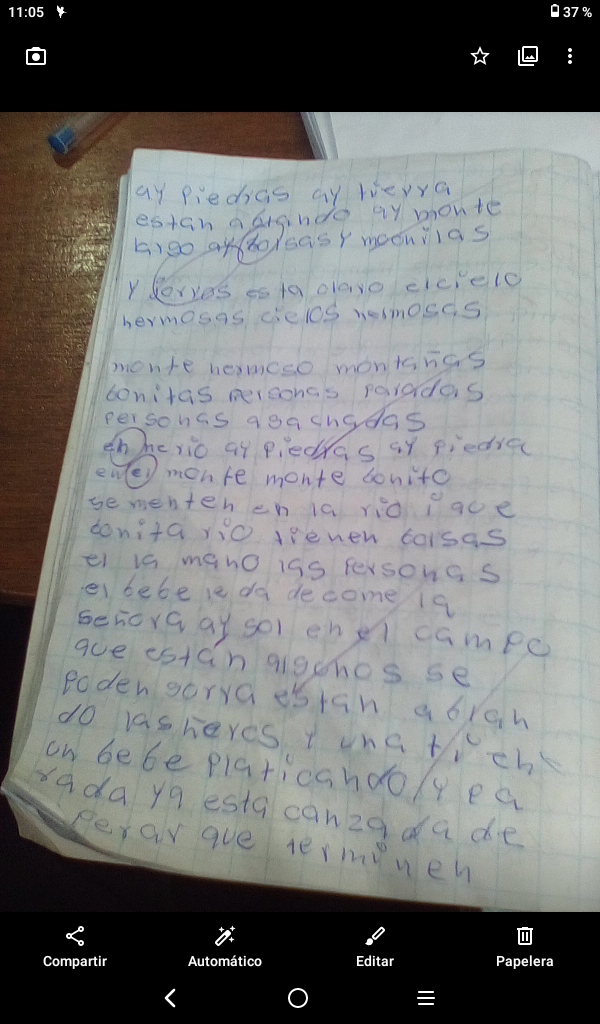 11:05
37 %
ay piedras ay tierra
estan ablando ay monte
largo ay bolsas y mochilas
y perros esta claro elcielo
hermosas cielos hermosas
monte hermoso montañas
bonitas personas paradas
personas agachadas
en rio ay piedras ay piedra
en el monte monte bonito
se menten en la rio i que
bonita rio tienen bolsas
el la mano las personas
el bebe le da de come la
señora ay sol en el campo
que están algonos se
poden gorra están ablan
do las y una
un bebe platicando y pa
rada ya esta canzada de
perar que terminen
Compartir
Automático
Editar
Papelera